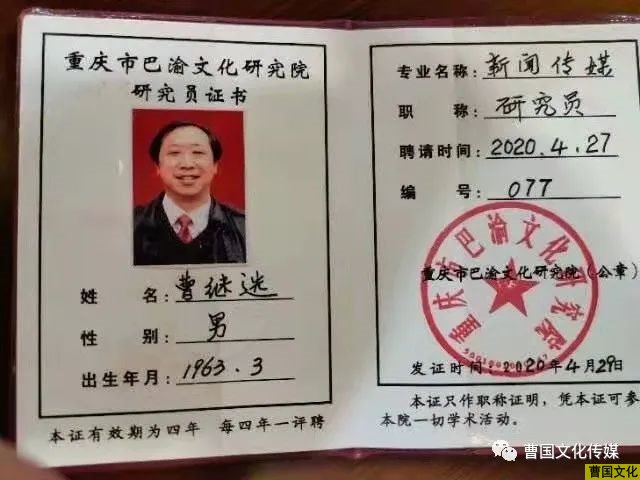 重庆市巴渝文化研究院
研究员证书
姓 名：曹继选
性 别：男
出生年月：1963.3
本证有效期为四年 每四年一评聘
专业名称：新闻传媒
职 称：研究员
聘请时间：2020.4.27
编 号：077
重庆市巴渝文化研究院（公章）
重庆市巴渝文化研究院
发证时间：2020年4月29日
本证只作职称证明，凭本证可参
本院一切学术活动。
曹国文化传媒
曹国文化